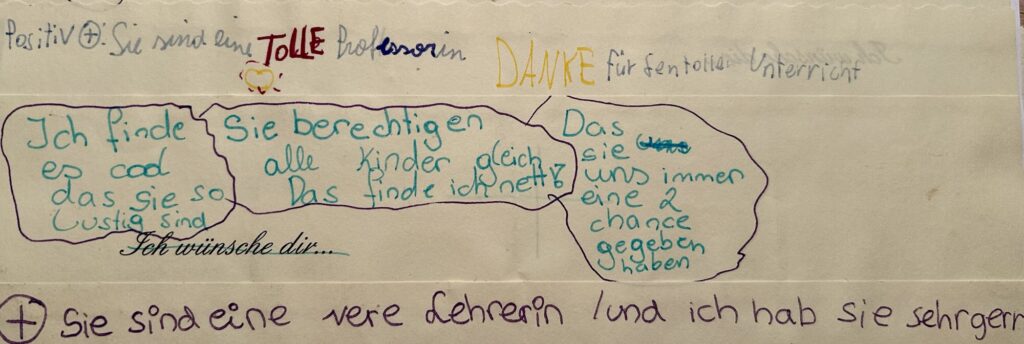 Positiv +: Sie sind eine TOLLE Professorin
DANKE für den tollen Unterricht
Ich finde
es cool
das sie so
Lustig sind
Sie berechtigen
alle Kinder gleich
Das finde ich nett
Das
sie
uns immer
eine 2
chance
gegeben
haben
Ich wünsche dir...
+ Sie sind eine vere Lehrerin /und ich hab sie sehr gern